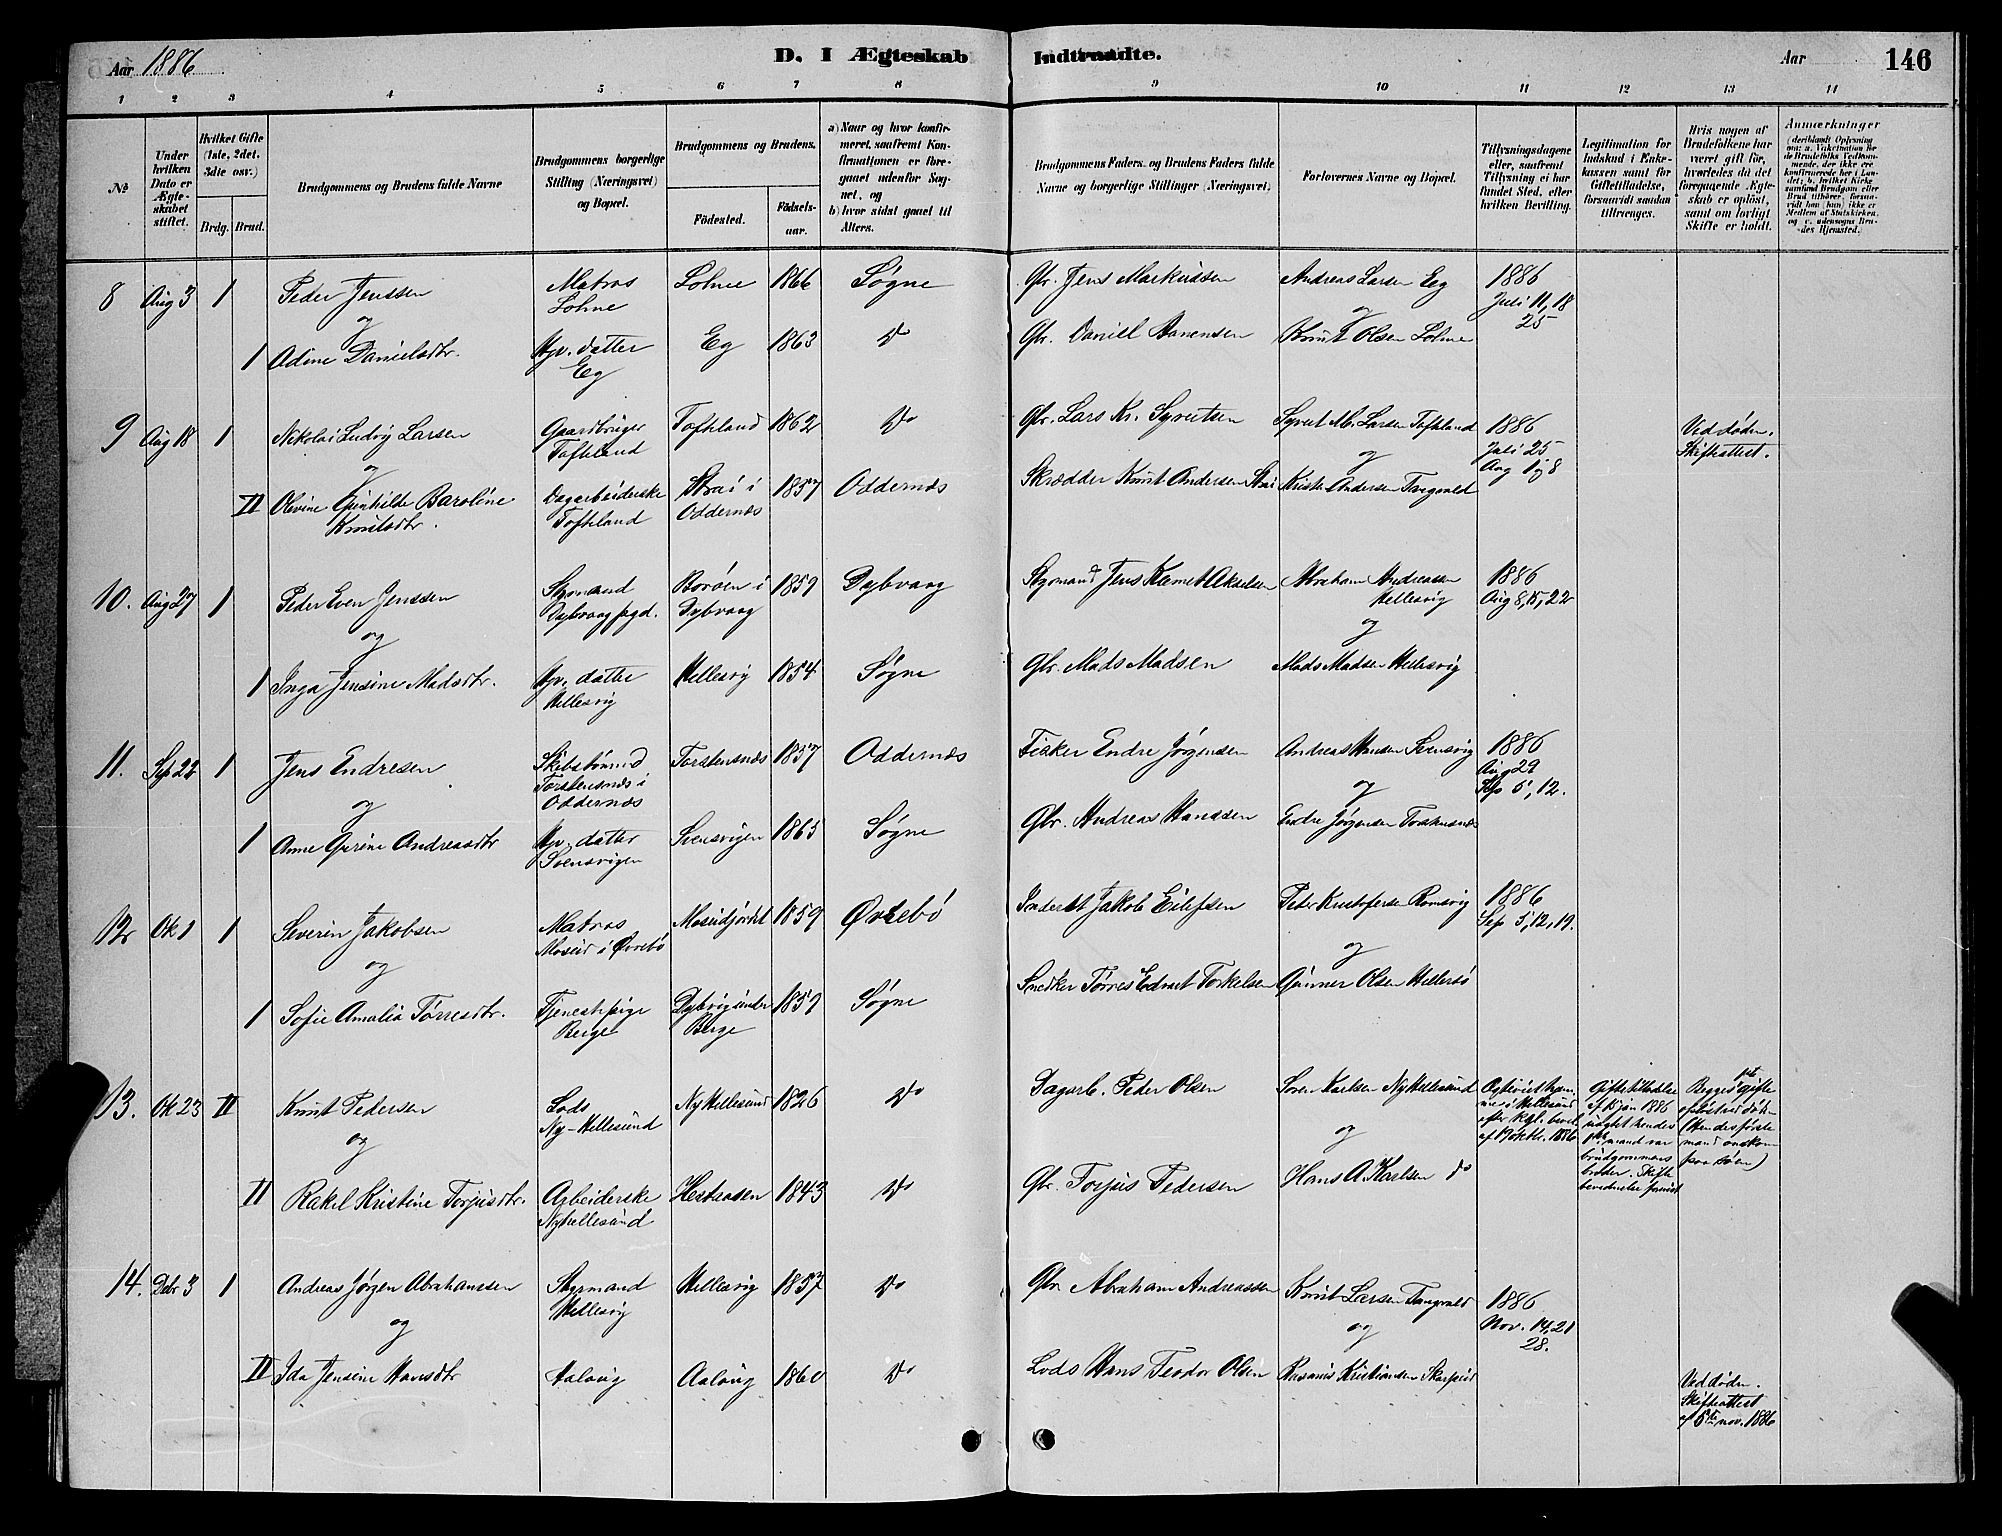 Aar 1886
D. I Ægteskab Indtraadte.
Aar
146
1 2 3 4 5 6 7 8 9 10 11 12 13 14
No
Under hvilken Dato er Ægteskabet stiftet.
Hvilket Gifte (1ste, 2det, 3die osv.)
Brdg. Brud.
Brudgommens og Brudens fulde Navne
Brudgommens borgerlige Stilling (Næringsvei) og Bopæl.
Brudgommens og Brudens.
Fødested.
Fødselsaar.
a) Naar og hvor konfirmeret, saafremt Konfirmationen er foregaaet udenfor Sognet, og
b) hvor sidst gaaet til Alters.
Brudgommens Faders og Brudens Faders fulde Navne og borgerlige Stillinger (Næringsvei).
Forlovernes Navne og Bopæl.
Tillysningsdagene eller, saafremt Tillysning ei har fundet Sted, efter hvilken Bevilling.
Legitimation for Indskud i Enkekassen samt for Giftetilladelse, forsaavidt saadan tiltrænges.
Hvis nogen af Brudefolkene har været gift før, hvorledes da det foregaaende Ægteskab er opløst, samt om lovligt Skifte er holdt.
Anmærkninger
(deriblandt Oplysning om: a. Vakcination for de Brudefolks Vedkommende, der ikke ere konfirmerede her i Landet; b. hvilket Kirkesamfund Brudgom eller Brud tilhører, forsaavidt han (hun) ikke er Medlem af Statskirken, og c. udensogns Brudes Hjemsted.
8 Aug 3 1 Peder Jenssen Matros Lohne Lohne 1866 Søgne Gbr. Jens Markussen Andreas Larsen Eg 1886 Juli 11, 18 25
og
1 Adine Danielsdtr. Hjv. datter Eg Eg 1863 Do Gbr. Daniel Hanensen Knut Olsen Lohne
9 Aug 18 1 Nikolai Ludvig Larsen Gaardbruger Tofteland Tofteland 1862 Do Gbr. Lars Kr. Syvertsen Syvert M. Larsen Toftland 1886 Juli 25 Aug 1 og 8 Ved døden. Skifteattest.
og
II Olevine Gunhilde Baroline Knutsdtr. Dagarbeiderske Tofteland Strai i Oddernæs 1857 Oddernæs Skrædder Knut Andersen Strai Andersen Tangvald
10. Aug 27 1 Peder Even Jenssen Styrmand Dybvaag Borøen i Dybvaag 1859 Dybvaag Styrmand Jens Akselsen Abraham Andreassen Hellesvig 1886 Aug 8, 15, 22
og
1 Inga Jensine Madsdtr. Hjv. datter Hellesvig Hellesvig 1854 Søgne Gbr. Mads Madsen Mads Madsen Hellesvig
11. Sep 22 1 Jens Endresen Skibstømmd Torstensnæs i Oddernæs Torstensnæs 1857 Oddernæs Fisker Endre Jørgensen Andreas Hansen Svensvig 1886 Aug 29 Sep 5, 12.
og
1 Anne Gurine Andreasdtr Hjv. datter Svensvigen Svensvigen 1865 Søgne Gbr. Andreas Hanssen Endre Jørgensen Torstensnæs
12 Ok 1 1 Severin Jakobsen Matros Moseid i Øvrebø 1859 Øvrebø Inderst Jakob Eilefsen Peter Kristofersen Romsvig 1886 Sep 5, 12, 19.
og
1 Sofie Amalia Tørresdtr. Tjenestepige Berge Dybvig under Berge 1859 Søgne Snedker Tørres Torkelsen Gunner Olsen Hellersø
13. Ok 23 II Knut Pedersen Lods Ny-Hellesund NyHellesund 1826 Do Dagarb. Peder Olsen Søren Karlsen NyHellesund i Hellesund efter Kgl. bevil. af 1886 Giftetilladelse af 15 jan 1886 uagtet hendes mand var brudgommens broder. Skifte Begges 1ste gifte (Hendes første mand omkom paa søen)
og
II Rakel Kristine Torjusdtr. Arbeiderske Nyhellesund 1843 Do Gbr. Torjus Pedersen Hans A. Karlsen do
14. Debr 3 1 Andreas Jørgen Abrahamsen Styrmand Hellesvig Hellesvig 1857 Do Gbr Abraham Andreassen Knut Larsen Tangvald 1886 Nov. 14, 21 28.
og
II Ida Jensine Hansdtr Aalovig Aalovig 1860 Do Lods Hans Teodor Olsen Rasmus Kristiansen Ved døden. Skifteattest af 5te nov. 1886